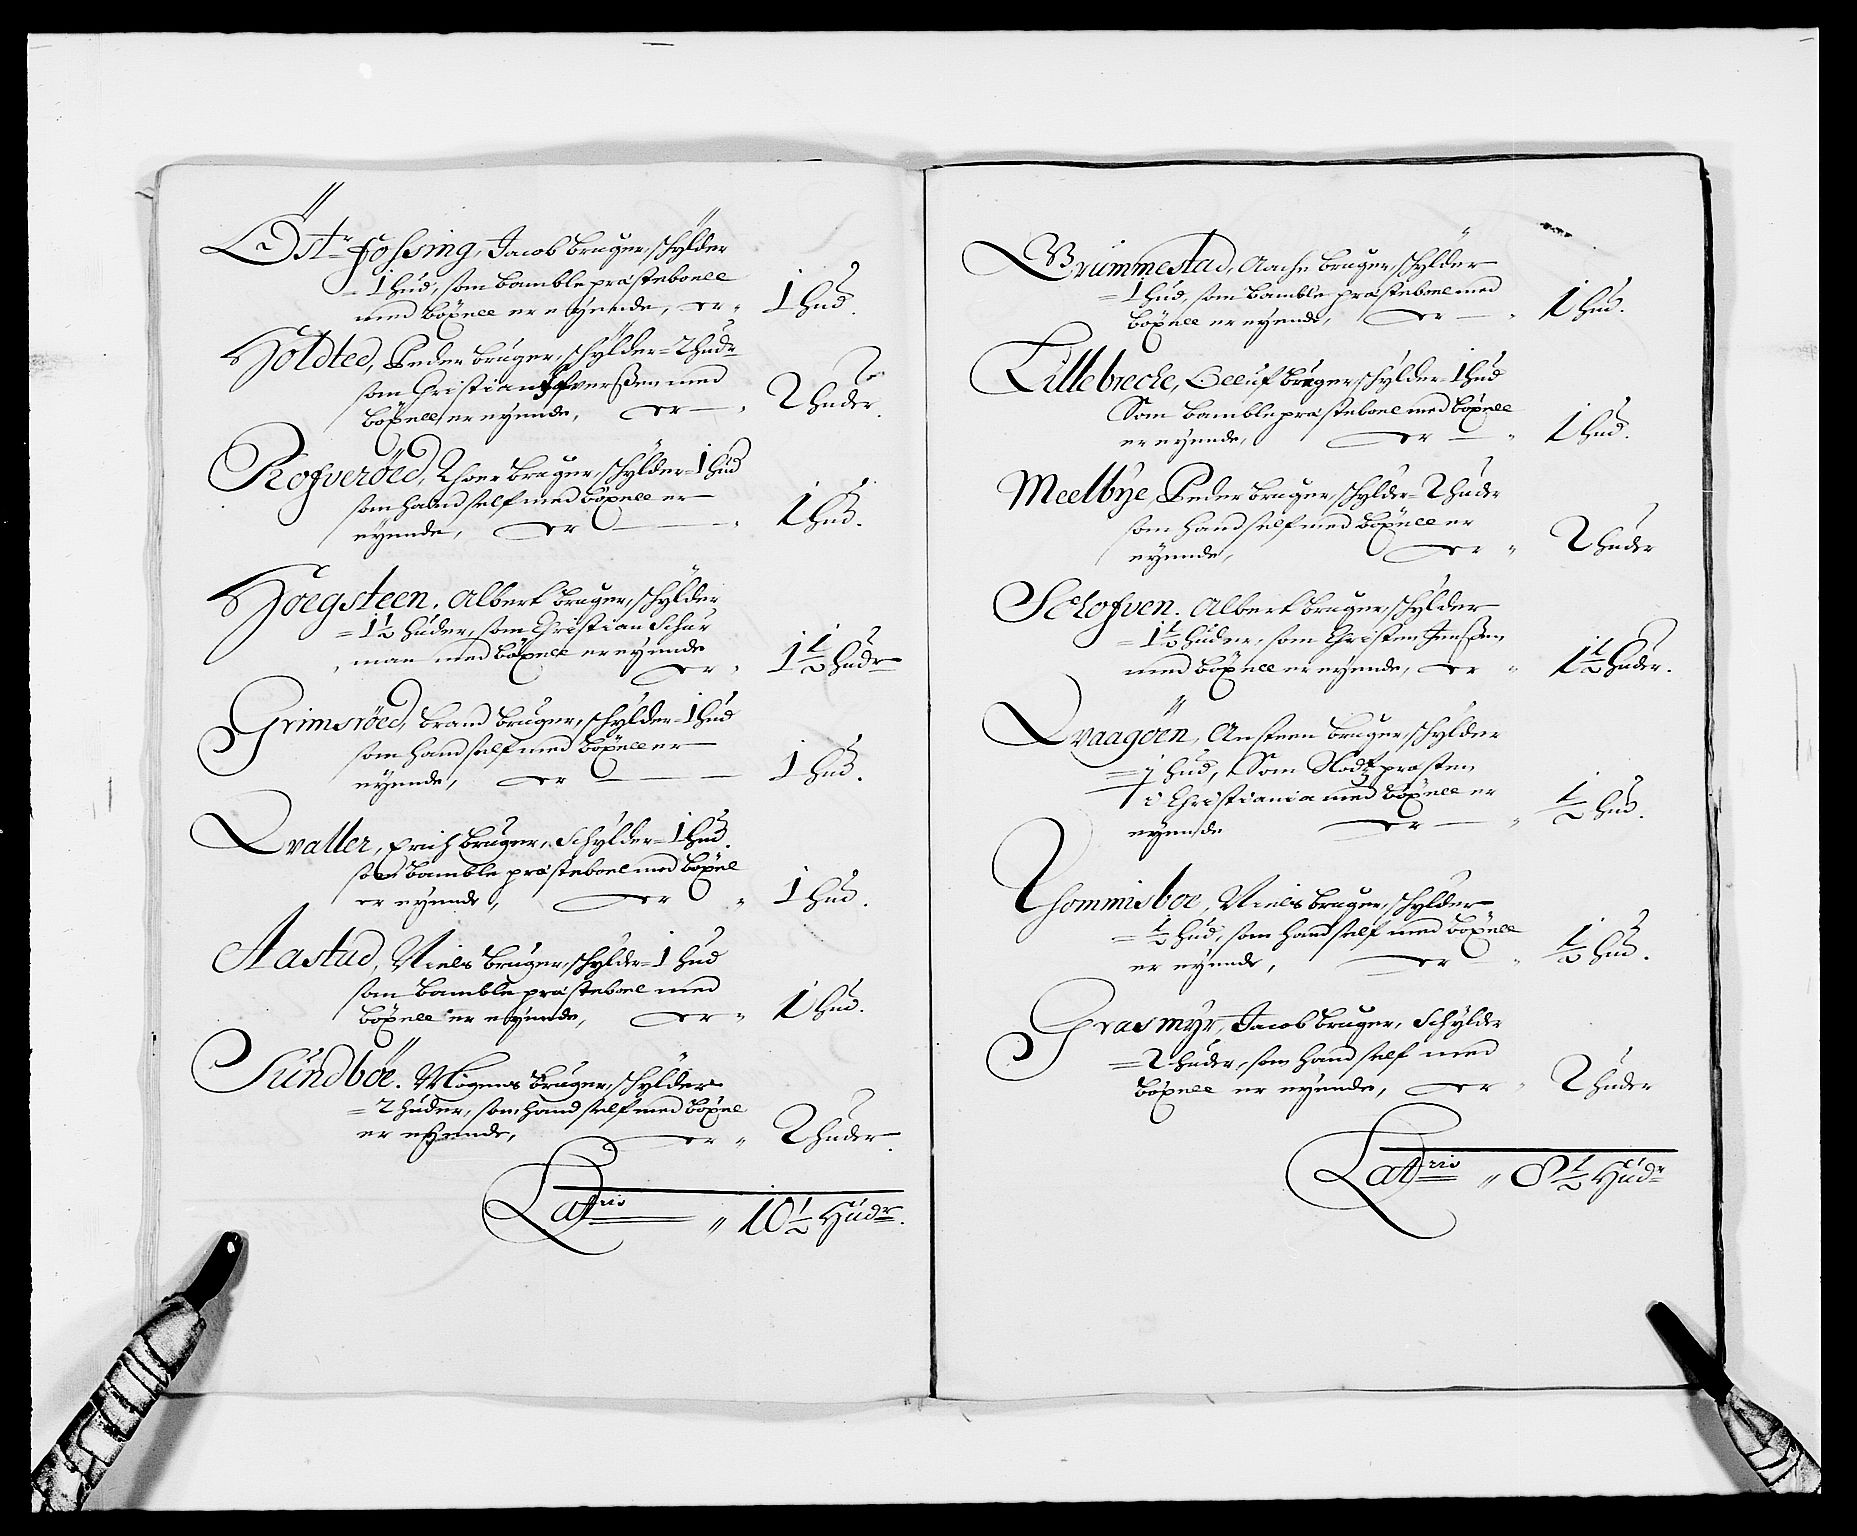 Östr fossing, Jacob bruger, schylder
= 1 hud, som bamble præsteboell
med böxell er eyende, er „ 1 hud.
Holdted, Peder bruger, schylder = 2 hudr
som Christian Ifverßen med
böxell er eyende, er — „ 2 huder.
Rofveröed, Thoer bruger, schylder = 1 hud
som hand self med böxell er
eyende, er — „ 1 hud.
Höegsteen. Albert bruger, schylder
= 1½ huder, som Christian Schur
man med böxell er eyende
er „ 1½ hudr
Grimsröed, brand bruger, schylder = 1 hud
som hand self med böxell er
eyende, er — 1 hud.
Qvaller, Erich bruger, Schylder = 1 hud.
som bamble præsteboel med böxel
er eyende, er „ 1 hud.
Aastad, Niels bruger, schylder = 1 hud
som bamble præsteboel med
böxell er eyende, er „ 1 hud.
Sundböe. Mogens bruger, schylder
= 2 huder, som hand self med böxel
er eyende, er „ 2 huder.
Latrio „ 10½ Hudr.
Brummestad, Aache bruger, schylder
= 1 hud, som bamble præsteboel med
böxell er eyende, er — „ 1 hud.
Lillebreche, Olluf bruger schylder = 1 hud
Som bamble præsteboel med böxell
er eyende, er — „ 1 hud.
Meelbye, Peder bruger, schylder = 2 huder
som hand self med böxell er
eyende, er „ 2 huder
Schofven. Albert bruger, schylder
= 1½ huder, som Christen Jenßen
med böxell er eyende, er „ 1½ huder.
Qvaagöen, Ansteen bruger, schylder
= ½ hud, Som Slodtzpræsten
i Christiania med böxell er
eyende er — „ ½ hud.
Thommisboe, Niels bruger, schylder
= ½ hud, som hand self med böxell
er eyende, er „ ½ hud.
Grasmyr, Jacob bruger, Schylder
= 2 huder, som hand self med
böxell er eyende, er „ 2 huder
Latrio „ 8½ Hudr